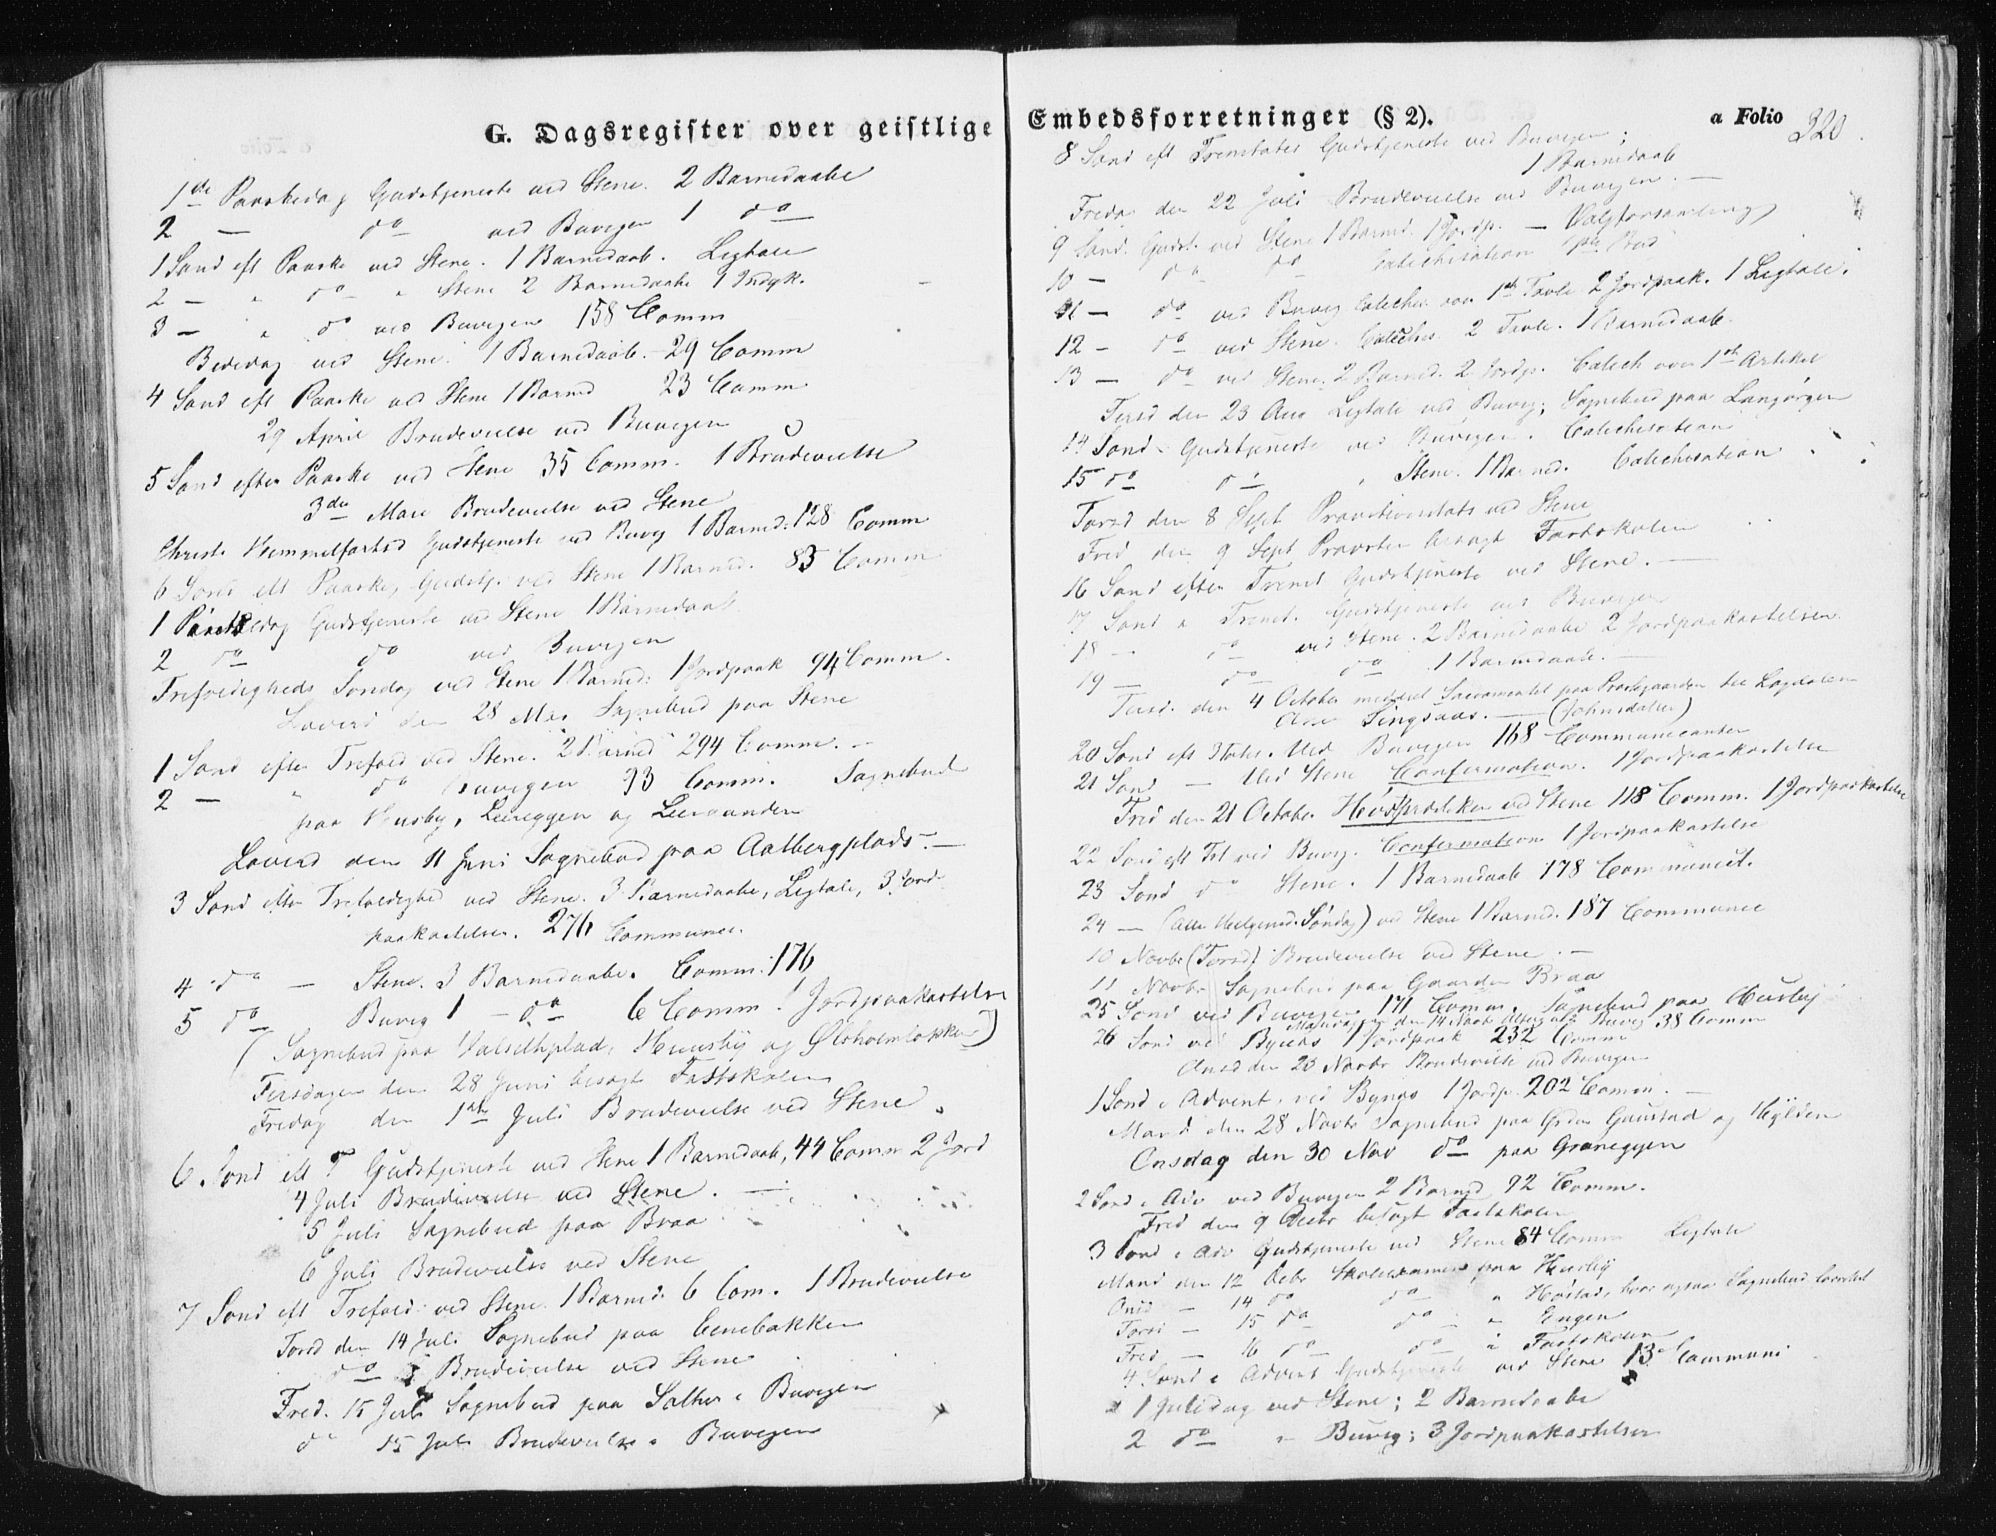 G. Dagsregister over geistlige
1de Paaskedag Gudstjeneste ved Stene. 2 Barnedaabe
2 — do ved Buvigen 1 do
1 Sønd eft Paaske ved Stene. 1 Barnedaab. Ligtale
2 — " do " Stene 2 Barnedaabe 1
3 — " do ved Buvigen 158 Comm
Bededag ved Stene. 1 Barnedaab. — 29 Comm
4 Sønd eft Paaske ved Stene 1 Barned 23 Comm
29 April Brudevielse ved Buvigen
5 Sønd efter Paaske ved Stene 35 Comm. 1 Brudevielse
3die Mai Brudevielse ved Stene
Christi Himmelfartsd Gudstjeneste ved Buvig 1 Barned: 128 Comm
6 Sønd eft Paaske, Gudstj. ved Stene 1 Barned. 83 Comm
1 Gudstjeneste ved Stene 1 Barnedaab
2 do do ved Buvigen
Trefoldigheds Søndag ved Stene 1 Barned: 1 Jordpaak 94 Comm.
Løverd den 28 Mai Sognebud paa Stene
1 Sønd efter Trefold ved Stene. 2 Barned 294 Comm. —
2 — " do Buvigen 93 Comm. Sognebud
paa Huusby, Leereggen og Leersanden
Løverd den 11 Juni Sognebud paa Aalbergplads. —
3 Sønd efter Trefoldighed ved Stene. 3 Barnedaabe, Ligtale, 3 Jord-
paakastelser. 276 Communic.
4 do — Stene. 3 Barnedaabe. Comm: 176
5 do Buvig 1 — do 6 Comm. 1 Jordpaakastelse
( Sognebud paa Huusby og )
Tirsdagen den 28 Juni besøgt Fastskolen
Fredag den 1ste Juli Brudevielse ved Stene.
6. Sønd eft T Gudstjeneste ved Stene 1 Barnedaab, 44 Comm 2 Jord
4 Juli Brudevielse ved Stene. —
5 Juli Sognebud paa Braa
6 Juli Brudevielse ved Stene
7 Sønd eft Trefold: ved Stene. 1 Barned. 6 Com. 1 Brudevielse
Torsd den 14 Juli Sognebud paa
do Brudevielse ved Stene
Fred. 15 Juli Sognebud paa Salther i Buvigen
do 15 Juli Brudevielse i Buvigen
Embedsforretninger (§ 2).
a Folio 320.
8 Sønd eft Trinitatis Gudstjeneste ved Buvigen;
1 Barnedaab
Fredag den 22 Juli Brudevielse ved Buvigen. —
9 Sønd. Gudst. ved Stene 1 Barned. 1 Jordp. — Valgforsamling
10 — do do Catechisation 1ste Bud
11 — do ved Buvig Cateches over 1ste Tavle 2 Jordpaak. 1 Ligtale.
12 — do ved Stene. Cateches 2 Tavle. 1 Barnedaab.
13 — do ved Stene. 2 Barned. 2 Jordp. Catech over 1ste Artikel
Tirsd den 23 Aug Ligtale ved Buvig; Sognebud paa Langørgen
14 Sønd — Gudstjeneste ved Buvigen. Catechisation
15 do do " Stene. 1 Barned. Catechisation
Torsd den 8 Sept Provstivisitats ved Stene
Fred den 9 Sept Provsten besøgt Fastskolen
16 Sønd efter Trinit Gudstjeneste ved Stene. —
17 Sønd e Trinit. Gudstjeneste ved Buvigen
18 — do ved Stene. 2 Barnedaabe 2 Jordpaakastelser.
19 — do do 1 Barnedaab. —
Tirsd. den 4 October meddelt Sacramentet paa Præstegaarden til
Singsaas. — (Johnsdatter)
20 Sønd eft Ved Buvigen 168 Communicanter
21 Sønd — Ved Stene Confirmation. 1 Jordpaakastelse
Fred den 21 October Høstpræken ved Stene 118 Comm. 1 Jordpaakastelse
22 Sønd eft Trt ved Buvig. Confirmation 1 Jordpaakastelse
23 Sønd do Stene. 1 Barnedaab 178 Communict.
24 — (Alle Helgensd. Søndag) ved Stene 1 Barned. 187 Communic
10 Novbr (Torsd) Brudevielse ved Stene. —
11 Novbr Sognebud paa Gaarden Braa
25 Sønd ved Buvigen 171 Comm. Sognebud paa Huusby
Mandagen den 14 Novbr Altergang Buvig 38 Comm
26 Sønd ved Bynæs 1 Jordpaak 232 Comm
Onsd den 23 Novbr Brudevielse ved Buvigen
1 Sønd i Advent. ved Bynæs 1 Jordp. 202 Comm. —
Mand den 28 Novbr Sognebud paa Grden Gaustad og
Onsdag den 30 Nov do paa Graneggen
2 Sønd i Adv ved Buvigen 2 Barned 92 Comm.
Fred den 9 Decbr besøgt Fastskolen
3 Sønd i Adv Gudstjeneste ved Stene 84 Comm Ligtale
Mand den 12 Decbr Skoleexamen paa Huusby
Onsd — 14 do do " Høstad, hvor ogsaa Sognebud
Torsd — 15 do do " Engen
Fred — 16 do do " Fastskolen
4 Sønd i Advent Gudstjeneste ved Stene 13 Communi
1 Juledag ved Stene; 2 Barnedaabe
2 do " Buvig; 3 Jordpaakastelser